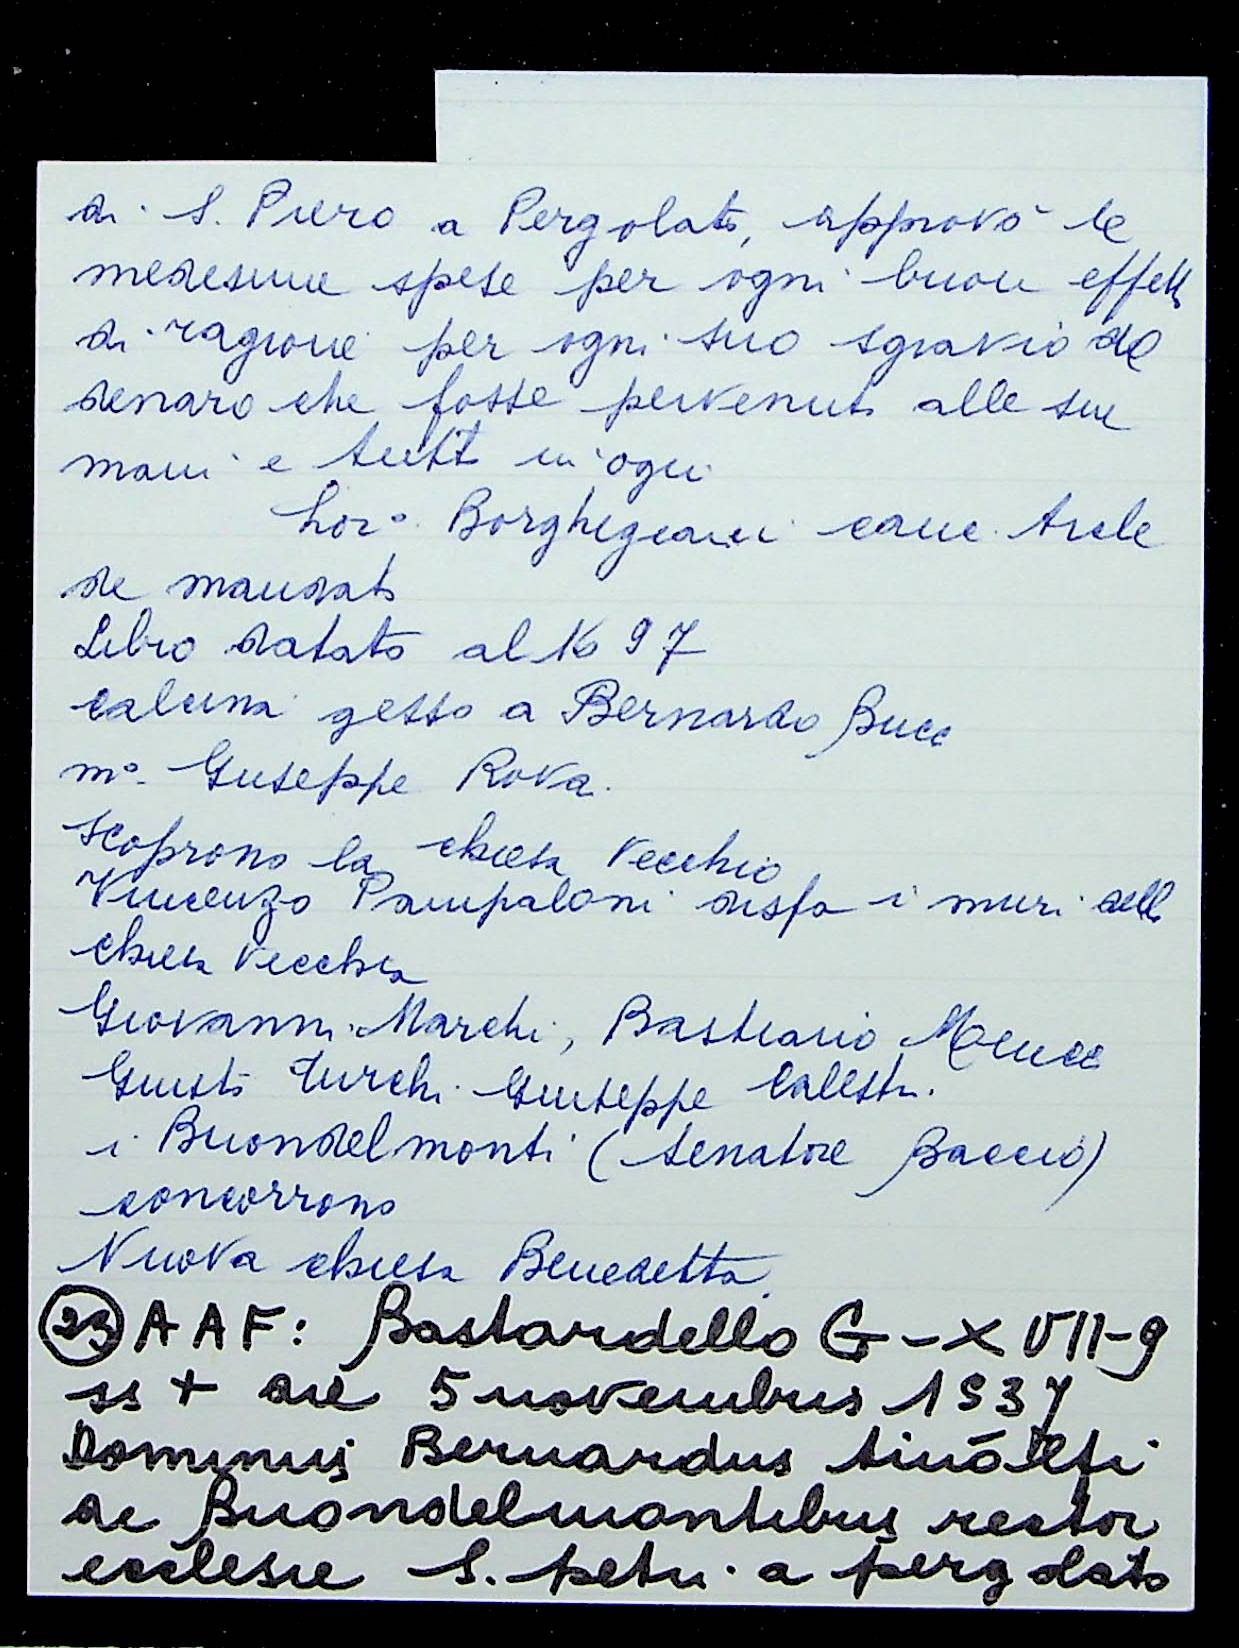 di S. Piero a Pergolato, approvò le
medesime spese per ogni buon effetto
di ragione per ogni suo sgravio del
denaro che fosse pervenuto alle sue
mani e tutto in ogni
Lor.o Borghigiani canc. Arcle
de mandato
Libro datato al 1697
calcina gesso a Bernardo Bucc
m.o Giuseppe Rova.
scoprono la chiesa vecchia
Vincenzo Pampaloni disfa i muri della
chiesa vecchia
Giovanni Marchi, Bastiano Menucc
Giusto Turchi Giuseppe Calestri.
i Buondelmonti (senatore Baccio)
concorrono
Nuova chiesa Benedetta.
(23) AAF: Bastardello G-XVII-9
die 5 novembris 1537
Dominus Bernardus
de Buondelmontibus rector
ecclesie S. petri a pergolato